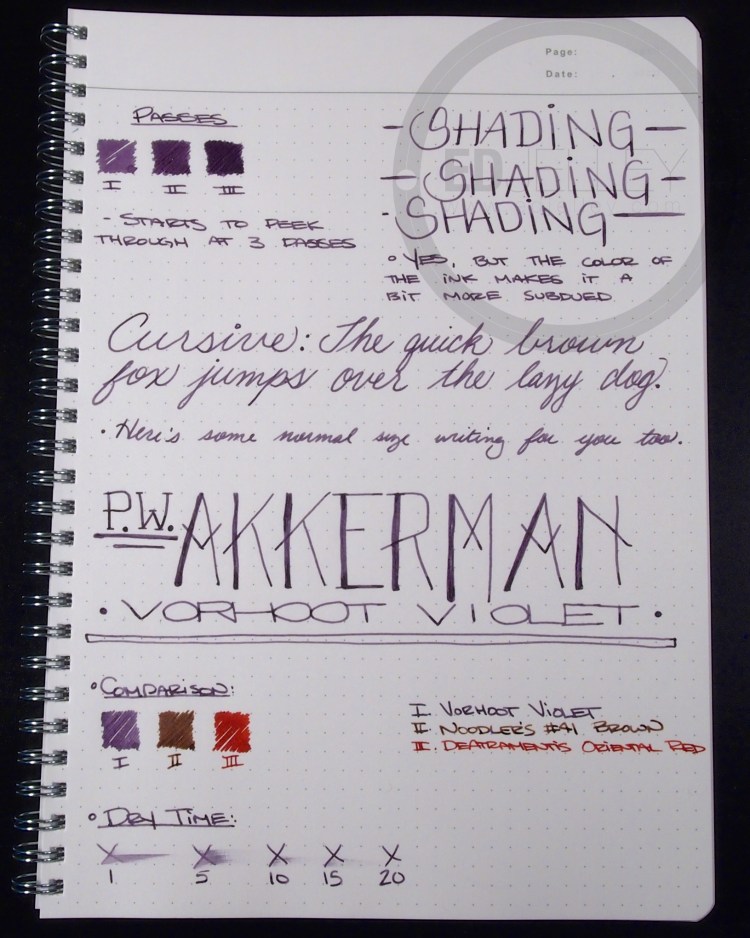 Page:
Date:
PASSES
I II III
- STARTS TO PEEK
THROUGH AT 3 PASSES
- SHADING -
- SHADING -
- SHADING -
ED JELLEY
• YES, BUT THE COLOR OF
THE INK MAKES IT A
BIT MORE SUBDUED
Cursive: The quick brown
fox jumps over the lazy dog.
• Here's some normal size writing for you too.
P.W. AKKERMAN
• VORHOOT VIOLET •
• COMPARISON:
I II III
I. VORHOOT VIOLET
II. NOODLER'S #41 BROWN
III. DEATRAMENTIS ORIENTAL RED
• DRY TIME:
X X X X X
1 5 10 15 20